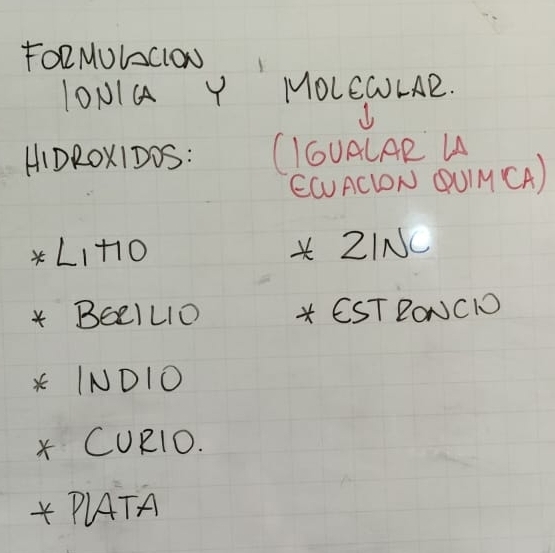 FORMULACION
IONICA Y MOLECULAR.
↓
HIDROXIDOS: (IGUALAR LA
ECUACION QUIMICA)
* LITIO * ZINC
* BERILIO * ESTRONCIO
* INDIO
* CURIO.
* PLATA